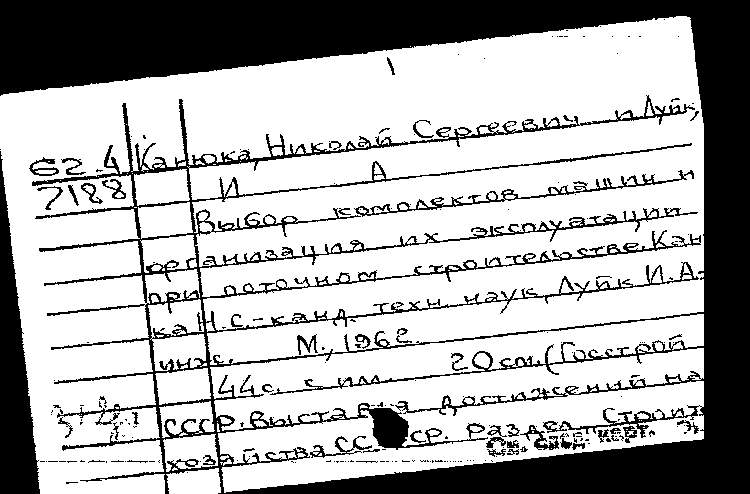 62-4 Канюка, Николай Сергеевич и Луйк,
7188 И А
Выбор комплектов машин и
организация их эксплуатации
при поточном строительстве. Кан
ка Н.С.-канд. техн. наук, Луйк И.А.-
инж. М., 1962.
44с. с илл. 20см. (Госстрой
СССР. Выставка достижений на
хозяйства СССР. Раздел Строит